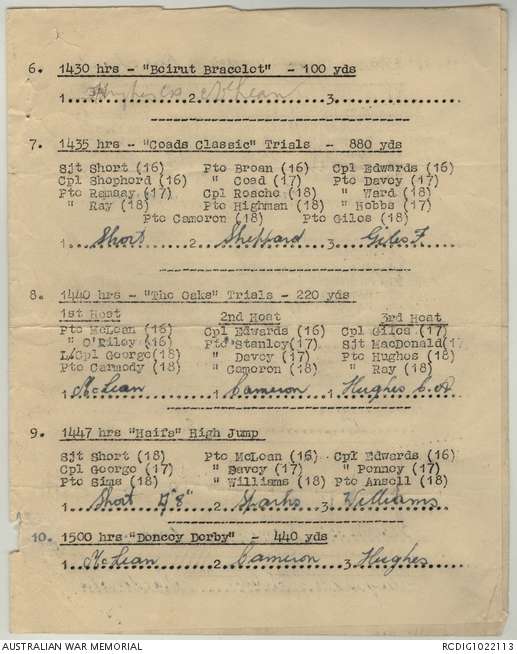 6. 1430 hrs - "Beirut Bracelet" - 100 yds
1. Hughes Cpl 2. McLean 3.
7. 1435 hrs - "Coads Classic" Trials - 880 yds
Sjt Short (16) Pte Broan (16) Cpl Edwards (16)
Cpl Shepherd (16) " Coad (17) Pte Davey (17)
Pte Ramsay (17) Cpl Rosche (18) " Ward (18)
" Ray (18) Pte Highman (18) " Hobbs (17)
Pte Cameron (18) Pte Giles (18)
1. Short 2. Sheppard 3. Giles F
8. 1440 hrs - "The Oaks" Trials - 220 yds
1st Heat 2nd Heat 3rd Heat
Pte McLean (16) Cpl Edwards (16) Cpl Giles (17)
" O'Riley (16) Pte Stanley (17) Sjt MacDonald (17)
L/Cpl George (18) " Davey (17) Pte Hughes (18)
Pte Carmody (18) " Cameron (18) " Ray (18)
1. McLean 2. Cameron 3. Hughes C.A
9. 1447 hrs "Haifa" High Jump
Sjt Short (18) Pte McLean (16) Cpl Edwards (16)
Cpl George (17) " Davey (17) " Penney (17)
Pte Sims (18) " Williams (18) Pte Ansell (18)
1. Short 4"8" 2. Sparks 3. Williams
10. 1500 hrs "Doncey Derby" - 440 yds
1. McLean 2. Cameron 3. Hughes
AUSTRALIAN WAR MEMORIAL RCDIG1022113